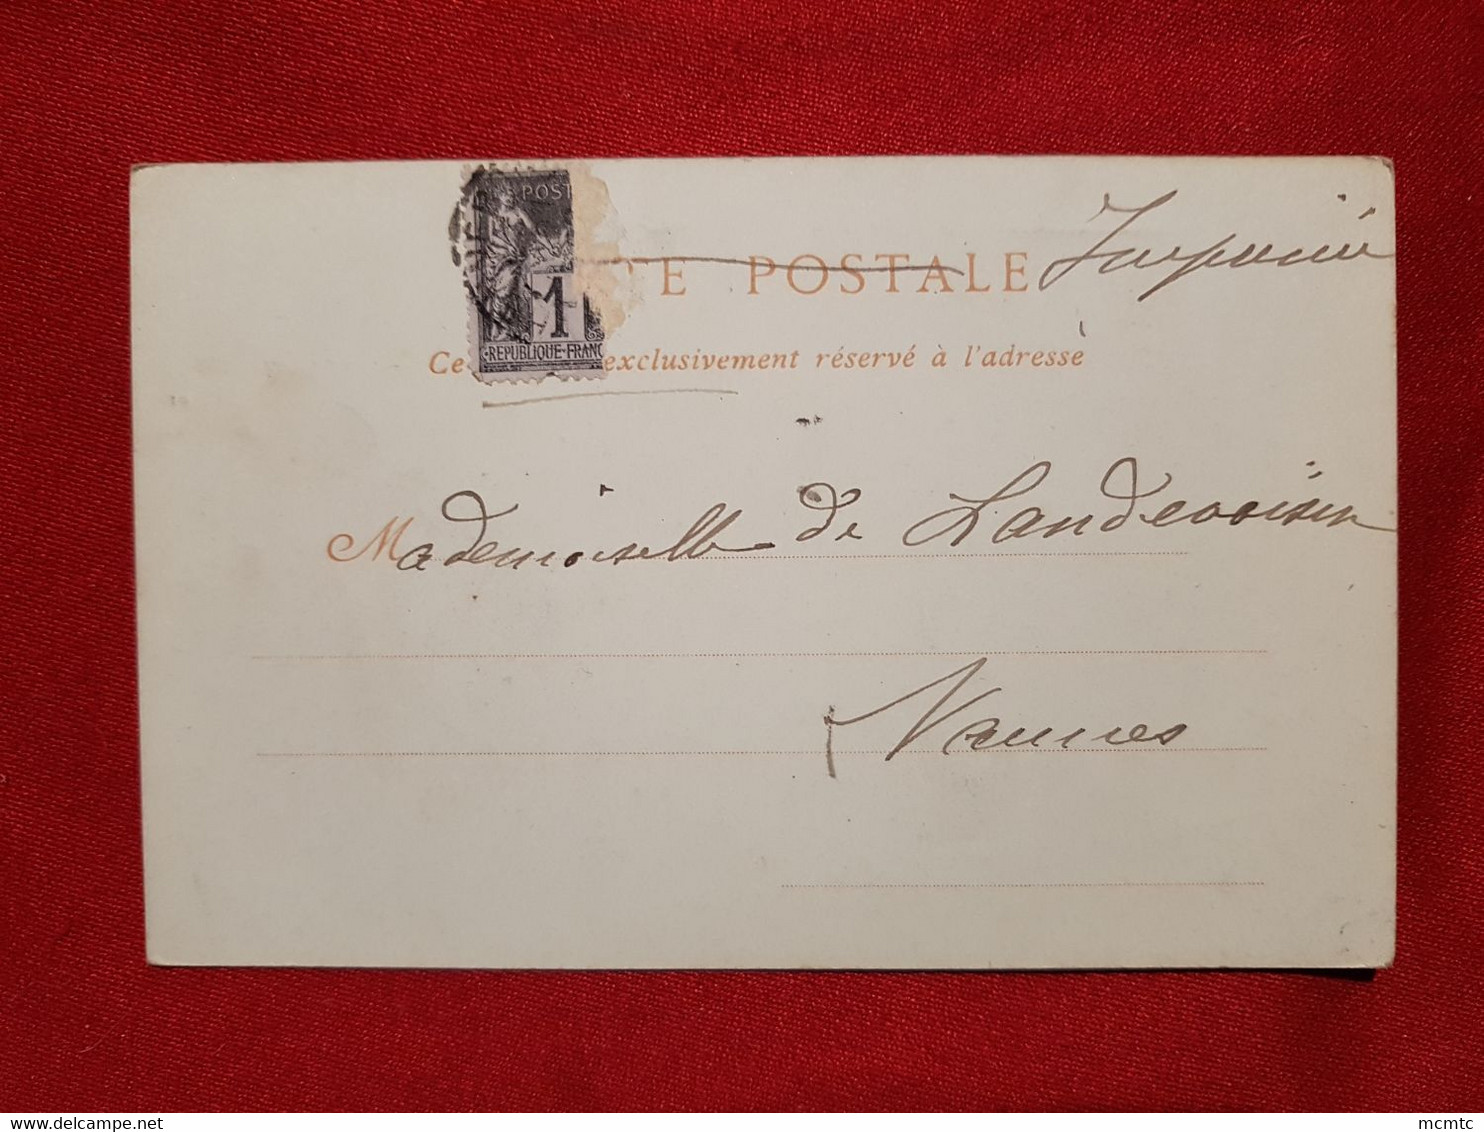 POST
1
REPUBLIQUE-FRANC
TE POSTALE
Imprimé
Ce exclusivement réservé à l'adresse
Mademoiselle de Landevoisin
Vannes
mcmtc